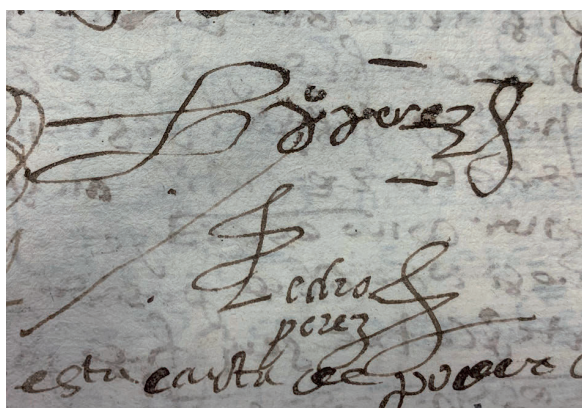 perez
Pedro
perez
esta carta de poder